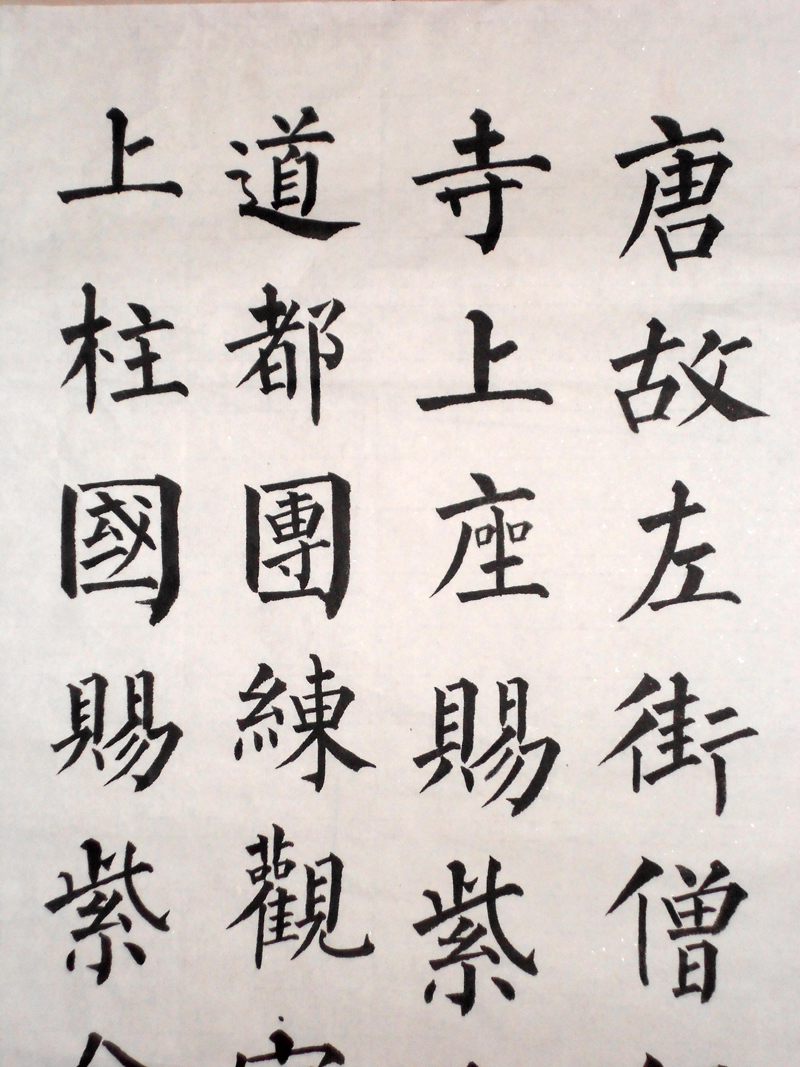 唐故左街僧
寺上座賜紫
道都團練觀
上柱國賜紫